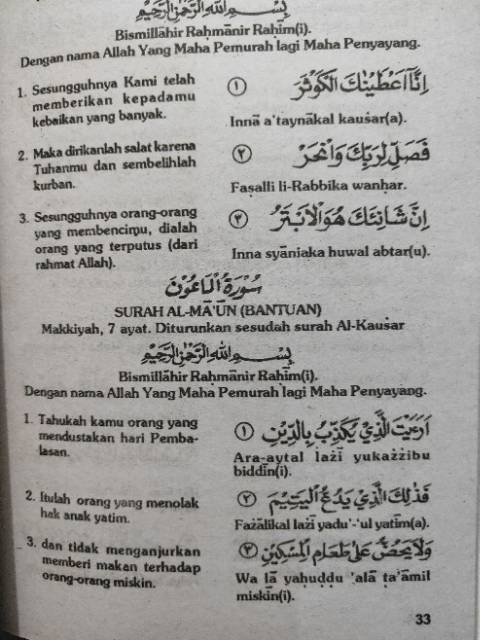 بِسْمِ اللهِ الرَّحْمٰنِ الرَّحِيْمِ
Bismillāhir Raḥmānir Raḥīm(i).
Dengan nama Allah Yang Maha Pemurah lagi Maha Penyayang.
1. Sesungguhnya Kami telah
memberikan kepadamu
kebaikan yang banyak.
١ اِنَّآ اَعْطَيْنٰكَ الْكَوْثَرَ
Innā a'taynākal kauṡar(a).
2. Maka dirikanlah salat karena
Tuhanmu dan sembelihlah
kurban.
٢ فَصَلِّ لِرَبِّكَ وَانْحَرْ
Faṣalli li-Rabbika wanḥar.
3. Sesungguhnya orang-orang
yang membencimu, dialah
orang yang terputus (dari
rahmat Allah).
٣ اِنَّ شَانِئَكَ هُوَ الْاَبْتَرُ
Inna syāniaka huwal abtar(u).
سُوْرَةُ الْمَاعُوْنَ
SURAH AL-MĀ'ŪN (BANTUAN)
Makkiyah, 7 ayat. Diturunkan sesudah surah Al-Kauṡar
بِسْمِ اللهِ الرَّحْمٰنِ الرَّحِيْمِ
Bismillāhir Raḥmānir Raḥīm(i).
Dengan nama Allah Yang Maha Pemurah lagi Maha Penyayang.
1. Tahukah kamu orang yang
mendustakan hari Pemba-
lasan.
١ اَرَءَيْتَ الَّذِيْ يُكَذِّبُ بِالدِّيْنِ
Ara-aytal lażī yukażżibu
biddīn(i).
2. Itulah orang yang menolak
hak anak yatim.
٢ فَذٰلِكَ الَّذِيْ يَدُعُّ الْيَتِيْمَ
Fażālikal lażī yadu'-'ul yatīm(a).
3. dan tidak menganjurkan
memberi makan terhadap
orang-orang miskin.
٣ وَلَا يَحُضُّ عَلٰى طَعَامِ الْمِسْكِيْنِ
Wa lā yaḥuḍḍu 'alā ṭa'āmil
miskīn(i).
33